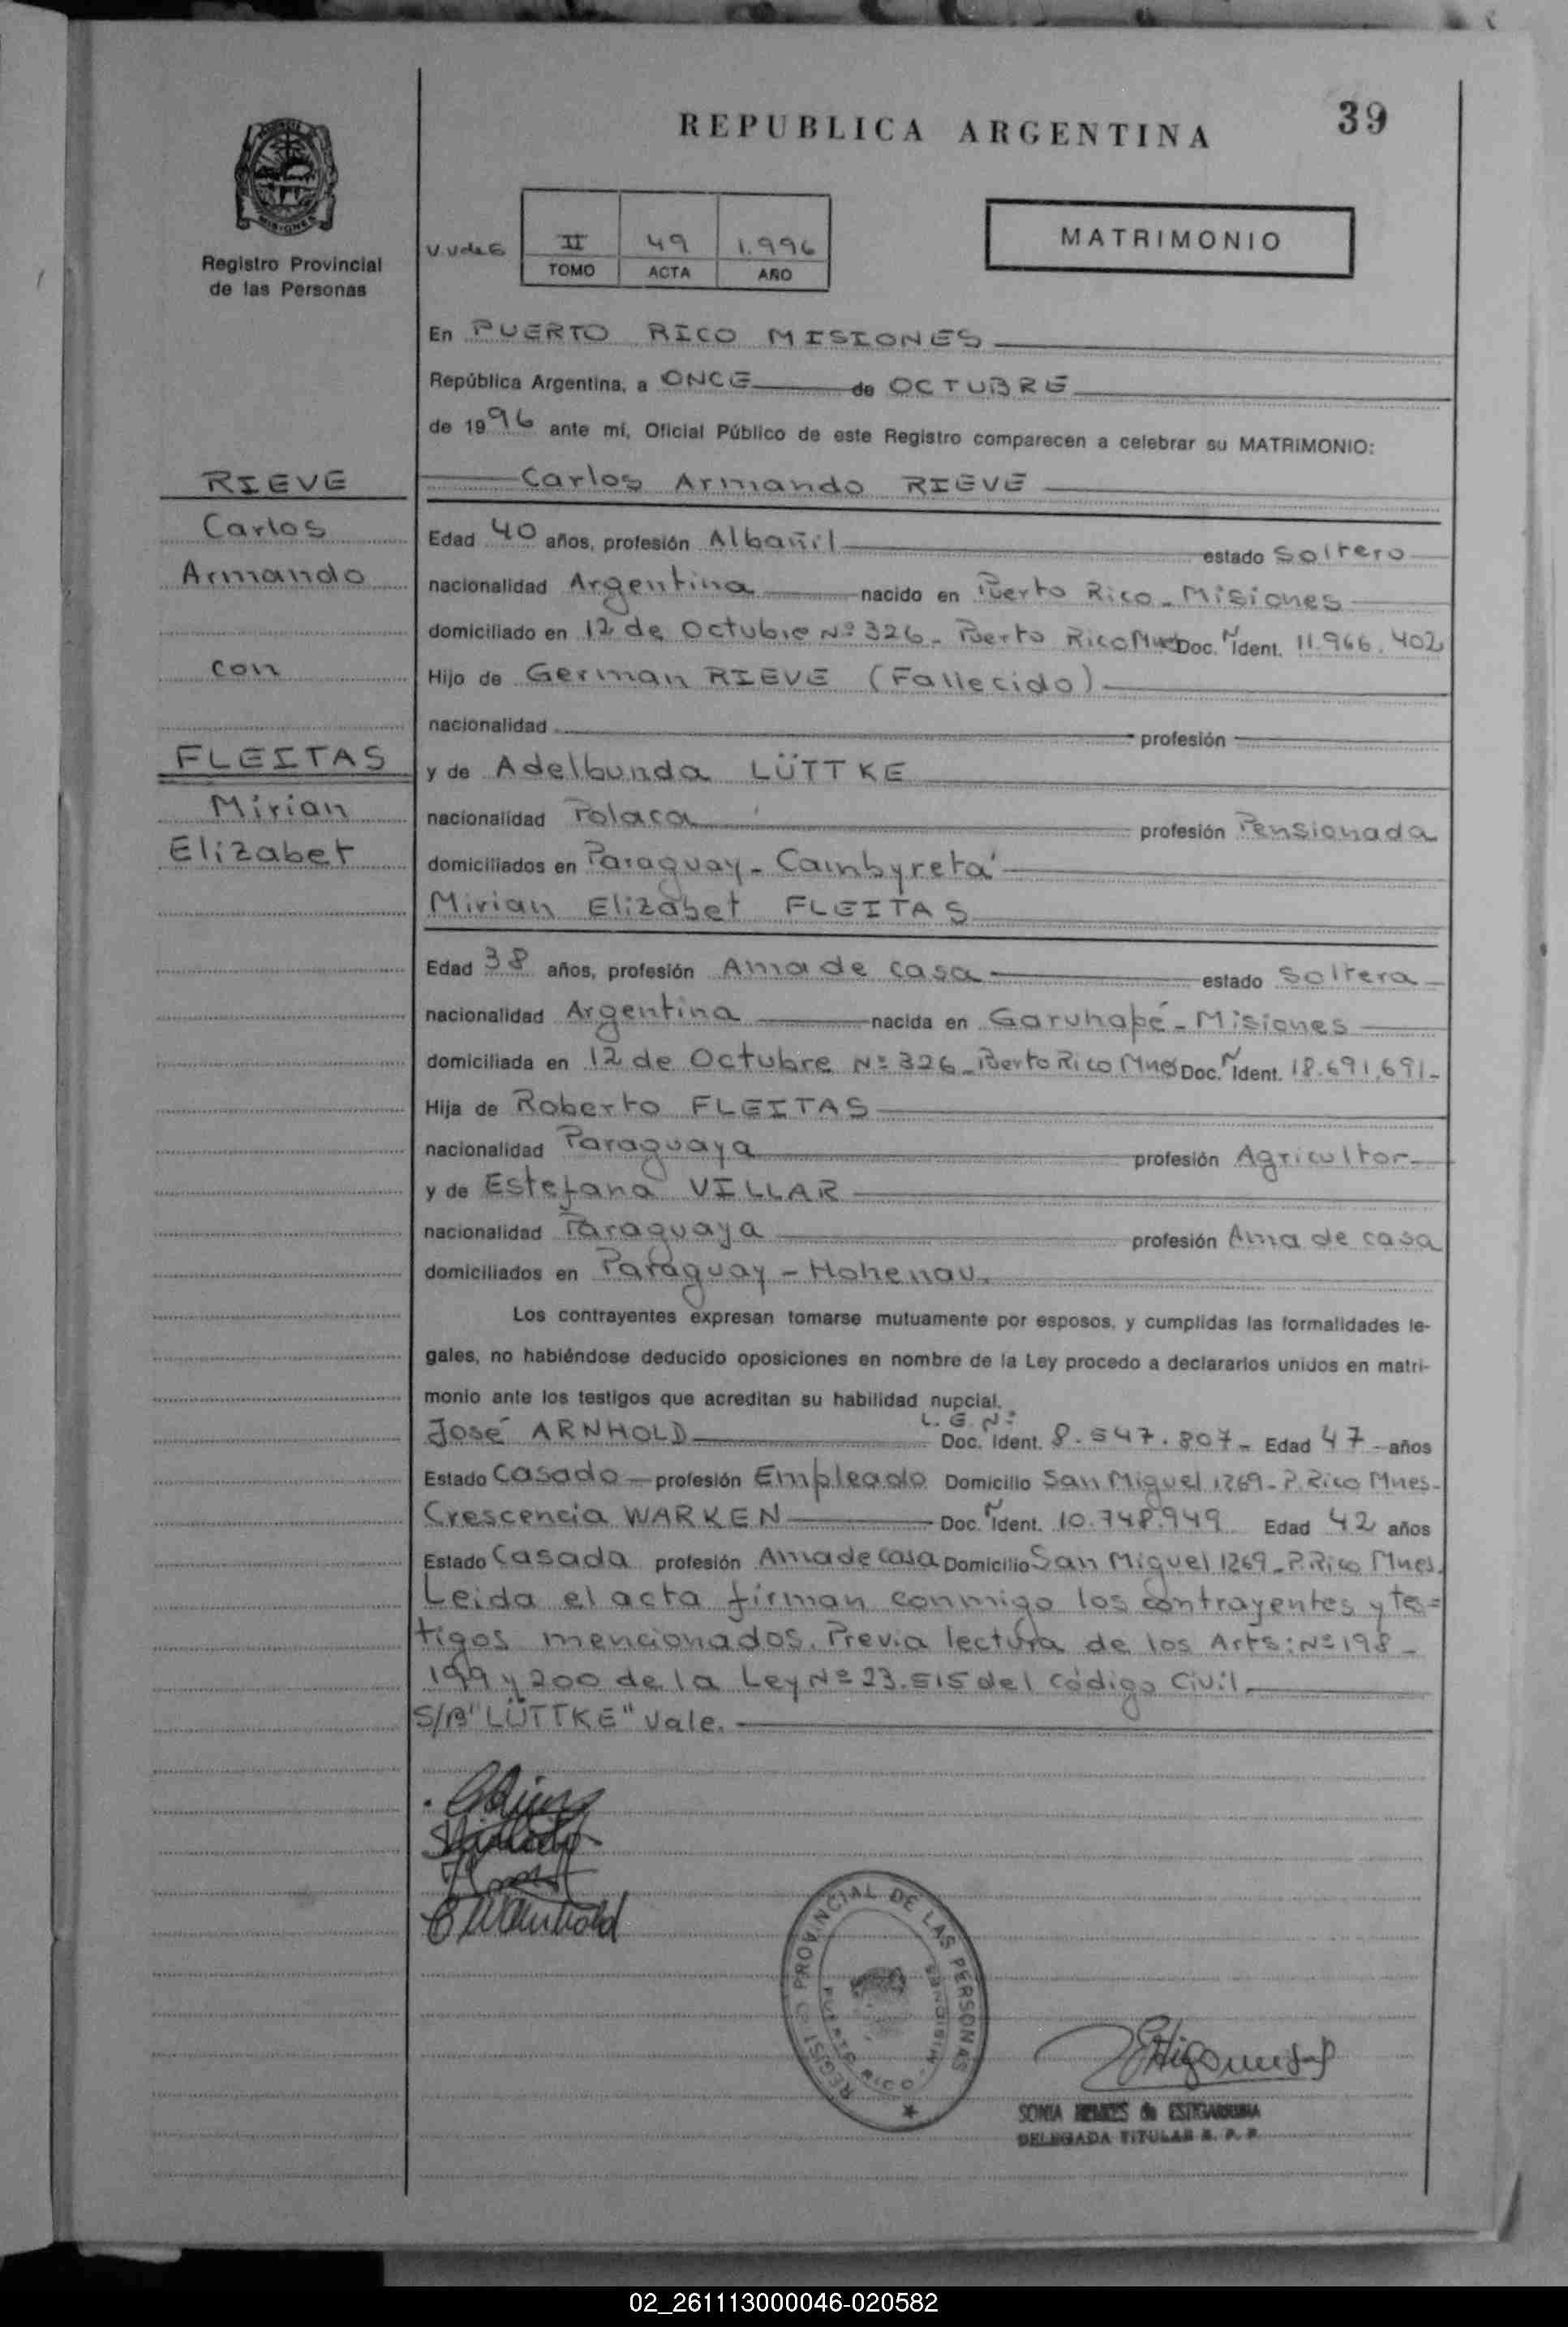 REPUBLICA ARGENTINA
39
MISIONES
Registro Provincial
de las Personas
II 49 1.996
TOMO ACTA AÑO
MATRIMONIO
En PUERTO RICO MISIONES
República Argentina, a ONCE de OCTUBRE
de 1996 ante mí, Oficial Público de este Registro comparecen a celebrar su MATRIMONIO:
RIEVE
Carlos
Armando
con
FLEITAS
Mirian
Elizabet
Carlos Armando RIEVE
Edad 40 años, profesión Albañil estado Soltero
nacionalidad Argentina nacido en Puerto Rico - Misiones
domiciliado en 12 de Octubre Nº 326 - Puerto Rico Mnes Doc. N Ident. 11.966.402
Hijo de German RIEVE (Fallecido)
nacionalidad profesión
y de Adelbunda LÜTTKE
nacionalidad Polaca profesión Pensionada
domiciliados en Paraguay - Cambyretá
Mirian Elizabet FLEITAS
Edad 38 años, profesión Ama de casa estado Soltera
nacionalidad Argentina nacida en Garuhapé - Misiones
domiciliada en 12 de Octubre Nº 326 - Puerto Rico Mnes Doc. N Ident. 18.691.691-
Hija de Roberto FLEITAS
nacionalidad Paraguaya profesión Agricultor
y de Estefana VILLAR
nacionalidad Paraguaya profesión Ama de casa
domiciliados en Paraguay - Hohenau.
Los contrayentes expresan tomarse mutuamente por esposos, y cumplidas las formalidades le-
gales, no habiéndose deducido oposiciones en nombre de la Ley procedo a declararlos unidos en matri-
monio ante los testigos que acreditan su habilidad nupcial.
L.E.Nº
José ARNHOLD Doc. Ident. 8.547.807- Edad 47 años
Estado Casado profesión Empleado Domicilio San Miguel 1269 - P. Rico Mnes-
Crescencia WARKEN Doc. N Ident. 10.748.949 Edad 42 años
Estado Casada profesión Ama de casa Domicilio San Miguel 1269 - P. Rico Mnes.
Leida el acta firman conmigo los contrayentes y tes=
tigos mencionados. Previa lectura de los Arts: Nº 198 -
199 y 200 de la Ley Nº 23.515 del Código Civil.
S/B "LÜTTKE" Vale.
REGISTRO PROVINCIAL DE LAS PERSONAS
PUERTO RICO - MISIONES
SONIA de ESTIGARRIBIA
DELEGADA TITULAR R. P. P.
02_261113000046-020582